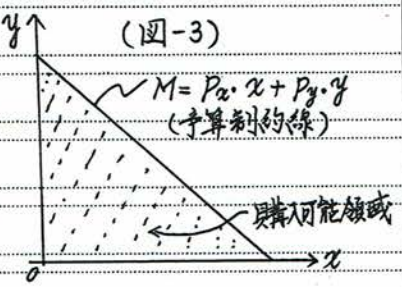 (図-3)
y
M = Px・x + Py・y
(予算制約線)
購入可能領域
0
x